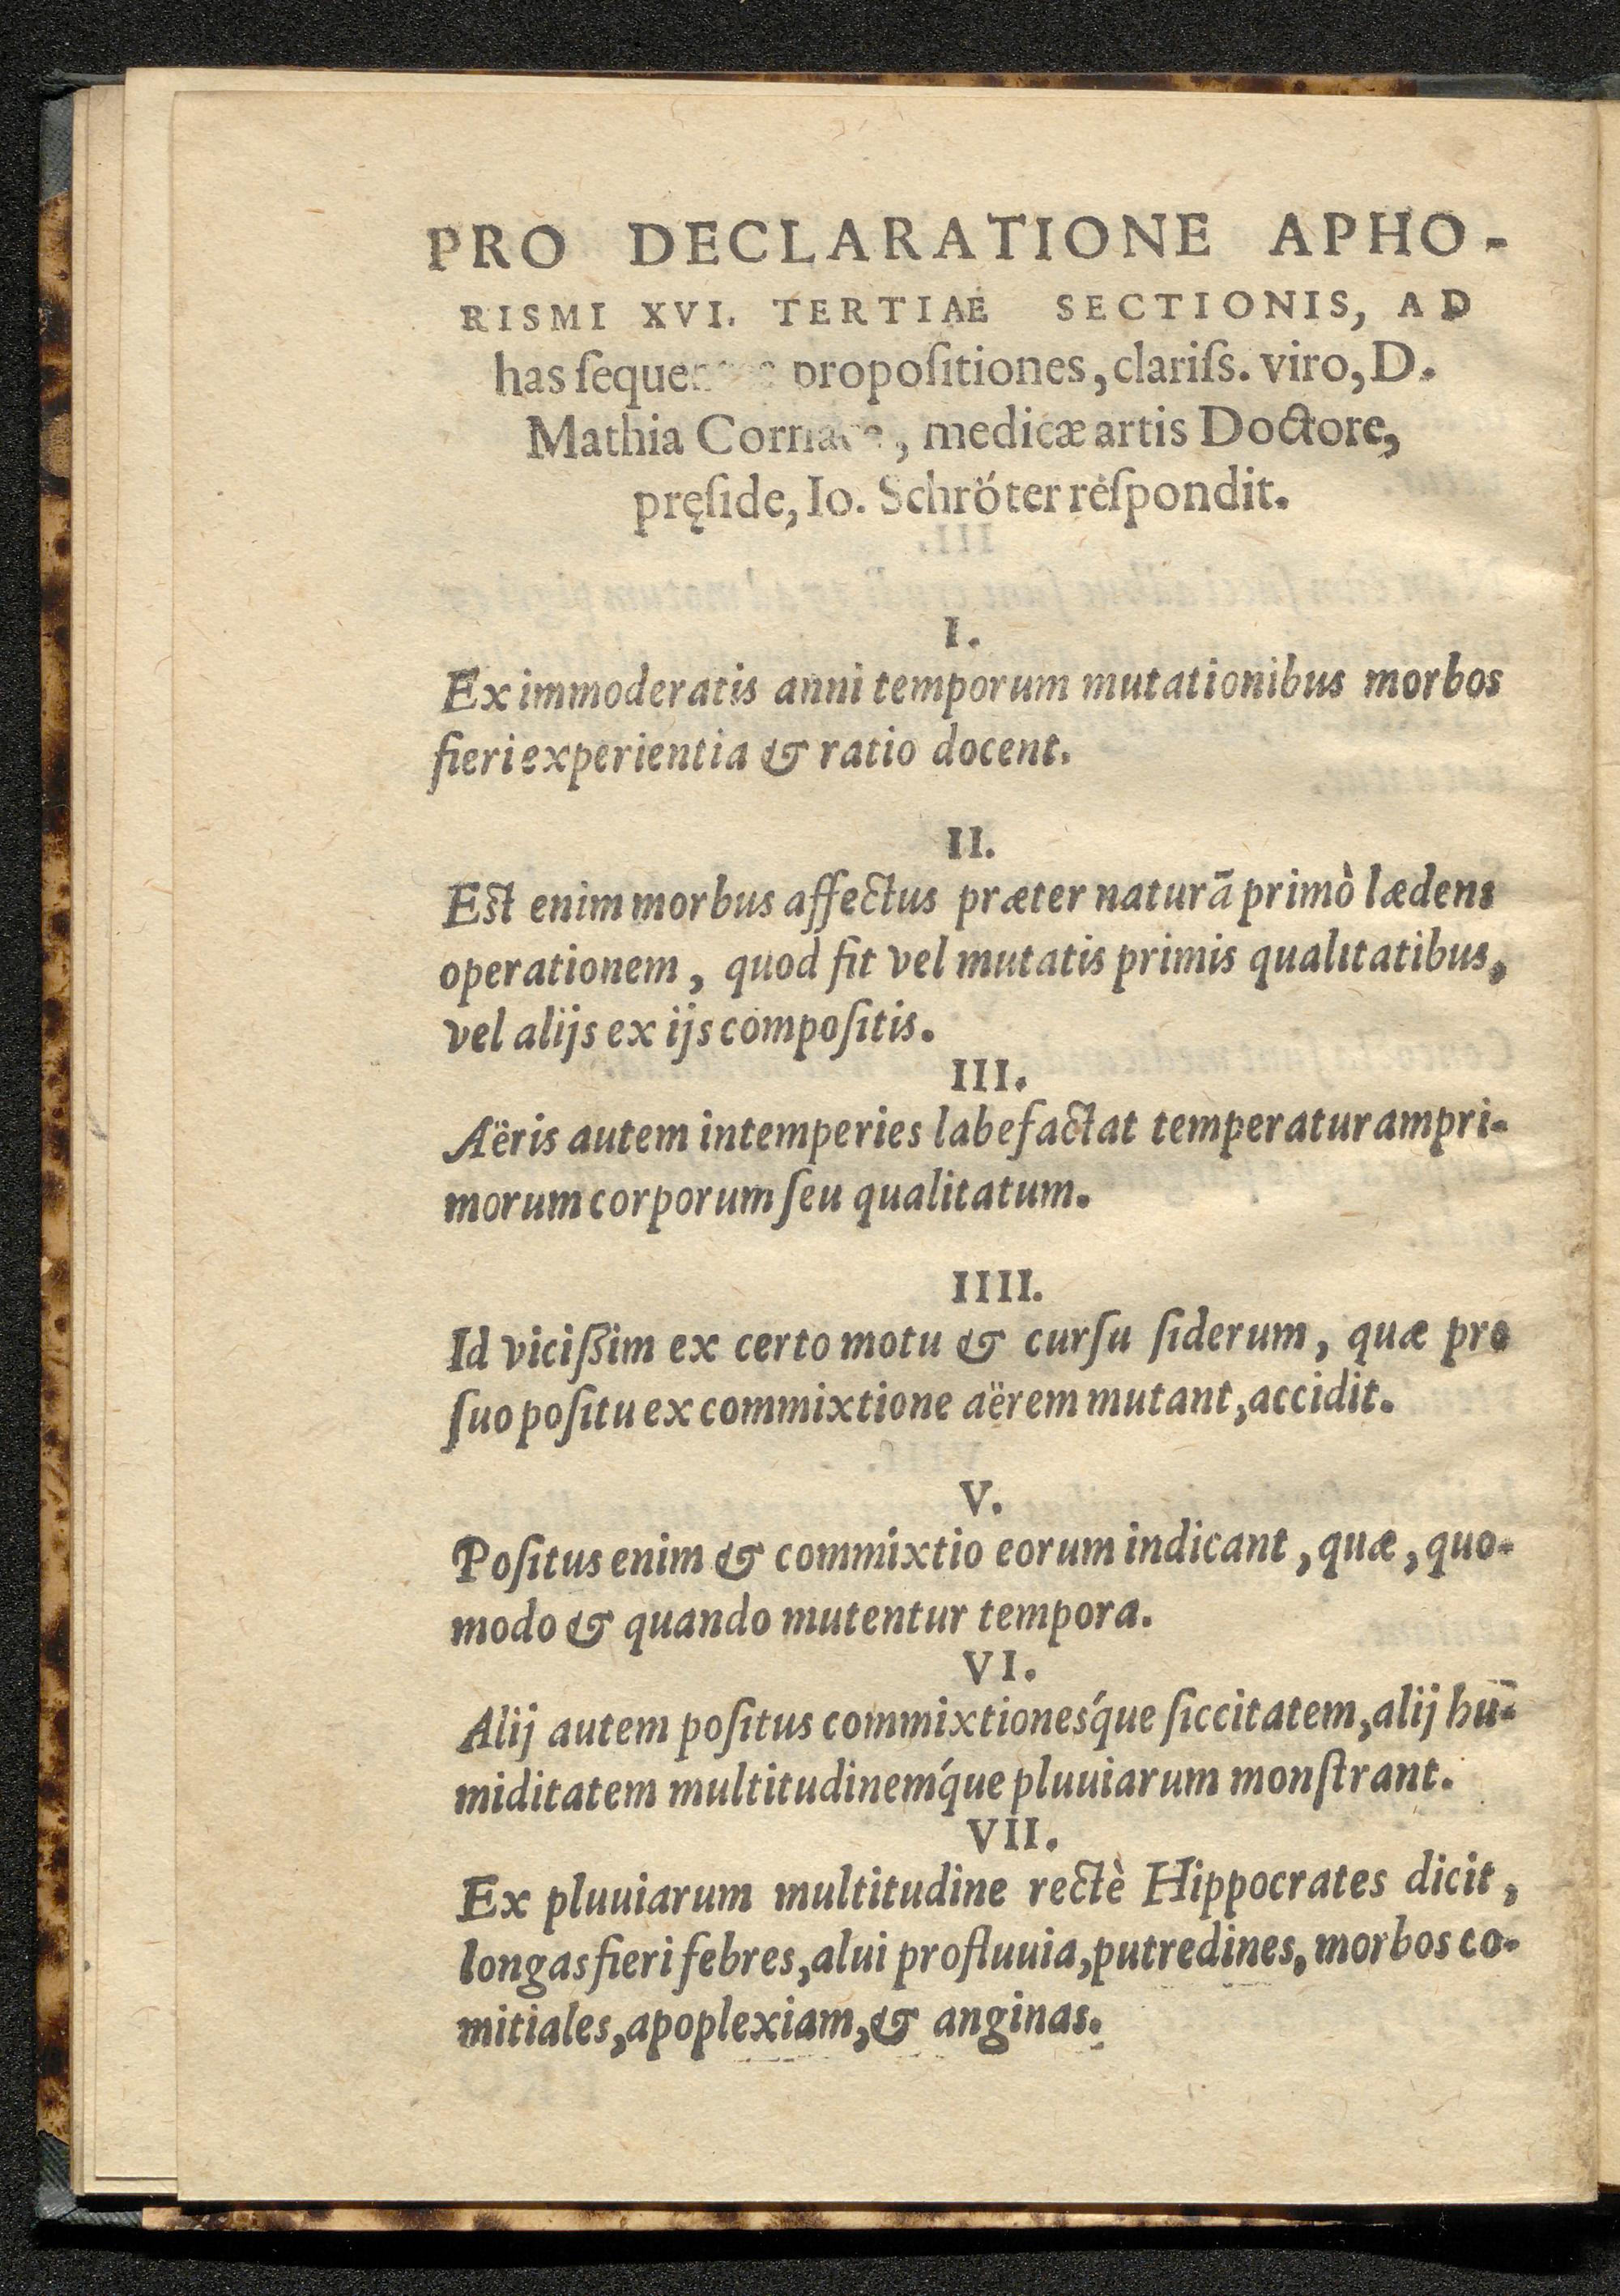 PRO DECLARATIONE APHO-
RISMI XVI. TERTIAE SECTIONIS, AD
has propoſitiones, clariſs. viro, D.
Mathia medicæ artis Doctore,
pręſide, Io. Schröter reſpondit.
I.
Ex immoderatis anni temporum mutationibus morbos
fieri experientia & ratio docent.
II.
Est enim morbus affectus præter naturā primò lædens
operationem, quod fit vel mutatis primis qualitatibus,
vel alijs ex ijs compoſitis.
III.
Aëris autem intemperies labefactat temperaturam pri-
morum corporum ſeu qualitatum.
IIII.
Id viciſsim ex certo motu & curſu ſiderum, quæ pro
ſuo poſitu ex commixtione aërem mutant, accidit.
V.
Poſitus enim & commixtio eorum indicant, quæ, quo-
modo & quando mutentur tempora.
VI.
Alij autem poſitus commixtionesq́ue ſiccitatem, alij hu-
miditatem multitudinemq́ue pluuiarum monſtrant.
VII.
Ex pluuiarum multitudine rectè Hippocrates dicit,
longas fieri febres, alui profluuia, putredines, morbos co-
mitiales, apoplexiam, & anginas.